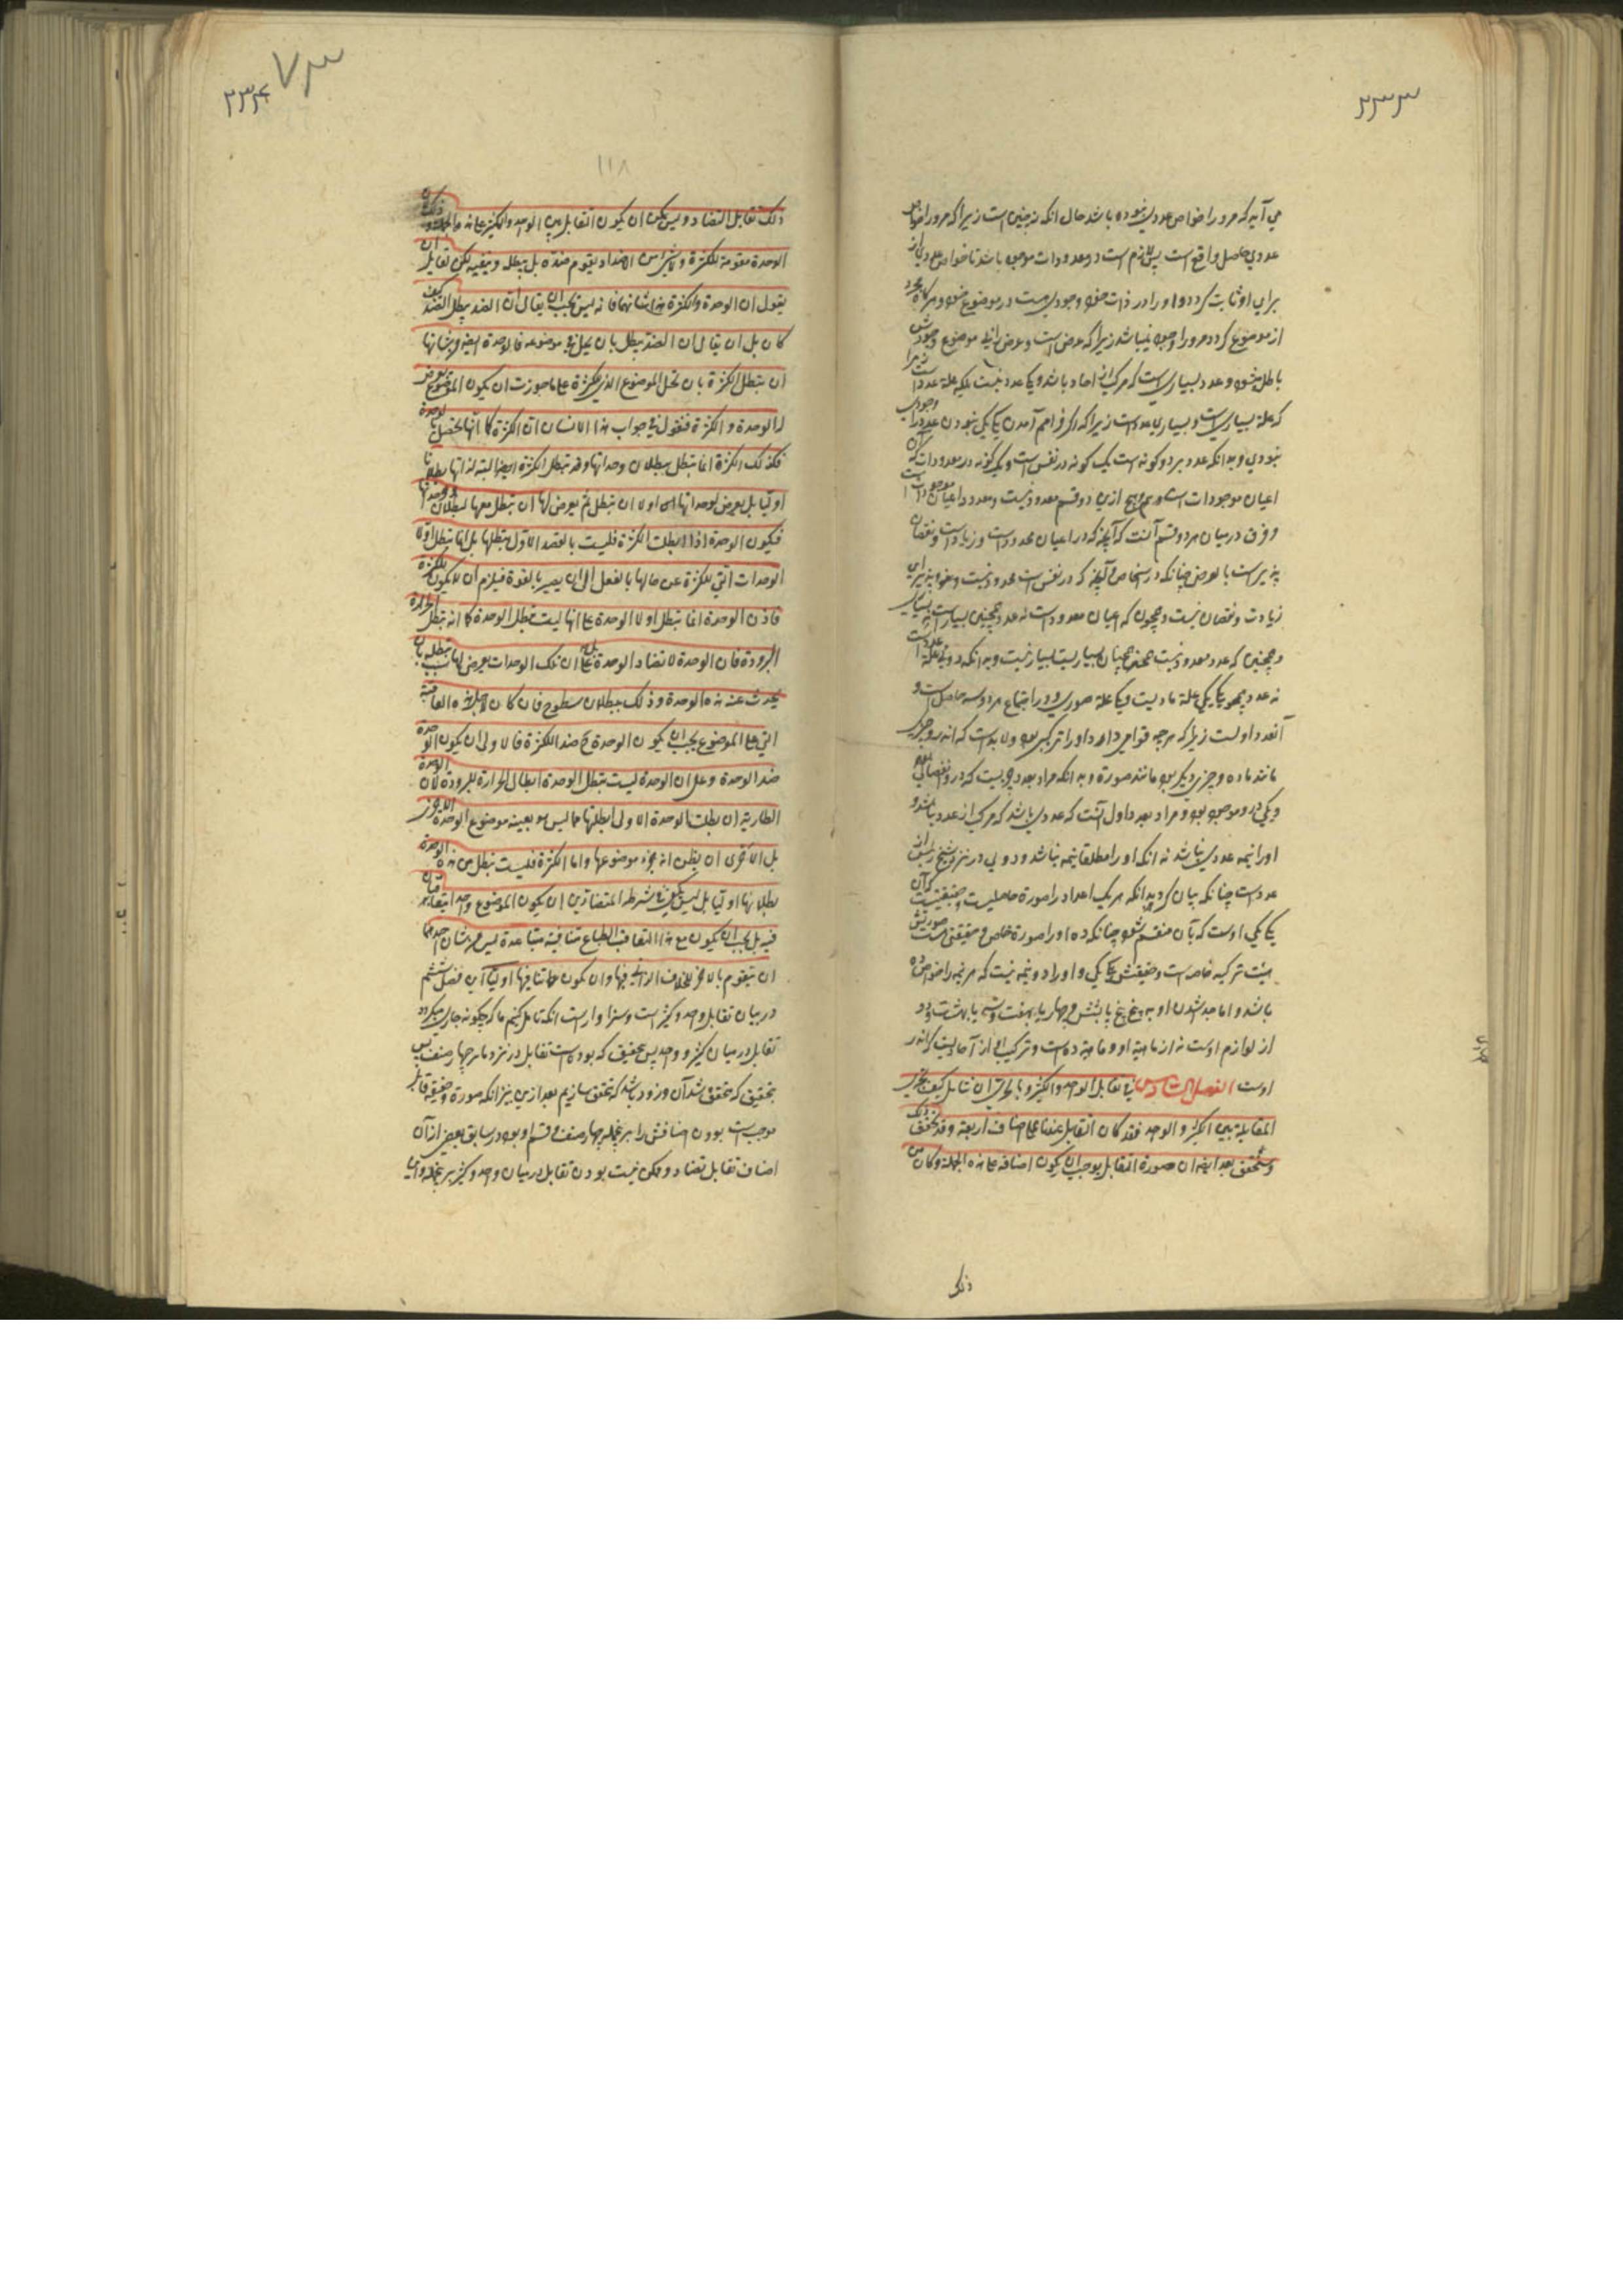 ۲۳۳
می آید که مرو را خواص عددی نبوده باشد حال انکه نه چنین است زیرا که مرو را خواص
عددی حاصل و واقع است پس لازم است در معدودات موجود باشد تا خواص عددی
برای او ثابت گردد و او را در ذات خود وجودی هست در موضوع خود و هرگاه مجرد
از موضوع گردد مرو را وجود نمیباشد زیرا که عرض است و عرض را بی موضوع وجودش
باطل میشود و عدد بسیاری است که مرکب از احاد باشد و یک عدد نیست بلکه علة عدد است زیرا
که علة بسیاری است و بسیاری عدد است زیرا که اگر فراهم آمدن یکی یکی نبودی عدد را وجودی
نبودی و بدانکه عدد بر دو گونه است یک گونه در نفس است و یک گونه در معدودات که آن
اعیان موجودات است و هیچ ازین دو قسم معدود نیست و معدود اعیان موجودات است
و فرق در میان هر دو قسم آنست که آنچه که در اعیان محدود است و زیادت و نقصان
پذیر است بالعرض چنانکه در اشخاص و آنچه که در نفس است محدود نیست و خود پذیرای
زیادت و نقصان نیست و همچون که اعیان معدود است نه عدد همچنین بسیار است نه بسیاری
و همچنین که عدد معدود نیست همچنان بسیاریست بسیار نیست و بدانکه دویی علة عدد است
نه عدد همچو یکی یکی علة مادیست و یکی علة صوری و در اجتماع هر دو سه حاصل است و
آن عدد اولست زیرا که هر چه قوامی دارد او را ترکیب بود و لا بد است که از دو چیز
مانند ماده و چیزی دیگر بود مانند صورة و بدانکه مراد بعدد چیزیست که درو انفصالی بود
و یکی درو موجود بود و مراد بعدد اول آنست که عددی باشد که مرکب از عدد نباشد و
او را نیمه عددی نباشد نه انکه او را مطلقا نیمه نباشد و دویی در نزد شیخ رئیس از
عدد است چنانکه بیان کرد و بدانکه هر یک اعداد را صورة حاصلیست و حقیقتیست که آن
یکی یکی اوست که بآن منقسم شود چنانکه ده او را صورة خاص و حقیقتی است صورتش
هیئت ترکیب خاصه است و حقیقتش یکی یکی و او را دو نیمه نیست که هر نیمه را خواص ده
باشد و اما جدا شدن او به پنج و پنج یا بشش و چهار یا بهفت و سه یا بهشت و دو
از لوازم اوست نه از ماهیة او و ماهیة ده است و ترکیب او از آحادیست که اندر
اوست الفصل السادس فی تقابل الواحد و الکثیر و بالحری ان نتامل کیف تجری
المقابلة بین الکثیر و الواحد فقد کان التقابل عندنا علی اصناف اربعة و قد تحقق ذلک
و سنحقق بعد ایضا ان صورة التقابل یوجب ان یکون اصنافه علی هذه الجملة و کان من
ذلک
۲۳۴
۷۳
۱۱۸
ذلک تقابل التضاد و لیس یمکن ان یکون التقابل بین الواحد و الکثیر علی هذه الجملة و ذلک ان
الوحدة مقومة للکثرة و لا شئ من الاضداد یقوم ضده بل یبطله و ینفیه لکن لقایل ان
یقول ان الوحدة و الکثرة هذا شانهما فانه لیس یجب ان یقال ان الضد یبطل الضد کیف
کان بل ان یقال ان الضد یبطل بان یحل فی موضوعه فالوحدة ایضا من شانها
ان تبطل الکثرة بان تحل الموضوع الذی للکثرة علی ما جوزت ان یکون الموضوع یعرض
له الوحدة و الکثرة فنقول فی جواب هذا الانسان ان الکثرة کما انها تحصل بالوحدة
فکذلک الکثرة انما تبطل ببطلان وحداتها و لا تبطل الکثرة ایضا البتة لذاتها بطلانا
اولیا بل یعرض لوحداتها اولا ان تبطل ثم یعرض لها ان تبطل معها لبطلان وحداتها
فیکون الوحدة اذا ابطلت الکثرة فلیست بالقصد الاول تبطلها بل انما تبطل اولا
الوحدات التی للکثرة عن حالها بالفعل الی ان یصیر بالقوة فیلزم ان لا یکون للکثرة
فاذن الوحدة انما تبطل اولا الوحدة علی انها لیست تبطل الوحدة کما انه تبطل الحرارة
البرودة فان الوحدة لا تضاد الوحدة بل علی ان تلک الوحدات یعرض لها سبب مبطل بان
یحدث عنه هذه الوحدة و ذلک ببطلان سطوح فان کان لاجل هذه المعاقبة
التی علی الموضوع یجب ان یکون الوحدة ضد الکثرة فالاولی ان یکون الوحدة
ضد الوحدة و علی ان الوحدة لیست تبطل الوحدة ابطال الحرارة للبرودة لان الوحدة
الطاریة ان ابطلت الوحدة الاولی ابطلتها عما لیس هو بعینه موضوع الوحدة الاخری
بل الاحری ان یظن انه جزء موضوعها و اما الکثرة فلیست تبطل من هذه الوحدة
بطلانها اولیا بل لیس یکفی فی شرط المتضادین ان یکون الموضوع واحدا یتعاقبان
فیه بل یجب ان یکون مع هذا التعاقب الطباع متنافیة متباعدة لیس من شان احدهما
ان یتقوم بالاخر للخلاف الذاتی فیها و ان یکون تنافیها اولیا این فصل ششم
در بیان تقابل واحد و کثیر است و سزاوار است انکه تامل کنیم ما که چگونه جاری میگردد
تقابل در میان کثیر و واحد پس بتحقیق که بوده است تقابل در نزد ما بر چهار صنف پس
بتحقیق که متحقق شد آن و زود باشد که محقق سازیم بعد ازین نیز انکه صورة و حقیقة تقابل
موجب است بودن اصنافش را بر اینجمله چهار صنف و قسم او بود در سابق بعض از آن
اصناف تقابل تضاد و ممکن نیست بودن تقابل در میان واحد و کثیر بر اینجمله و این